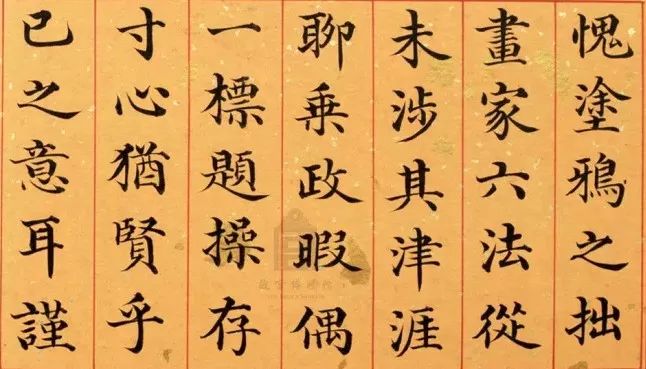 愧塗鴉之拙
畫家六法從
未涉其津涯
聊乗政暇偶
一標題操存
寸心猶賢乎
已之意耳謹
故宫博物院